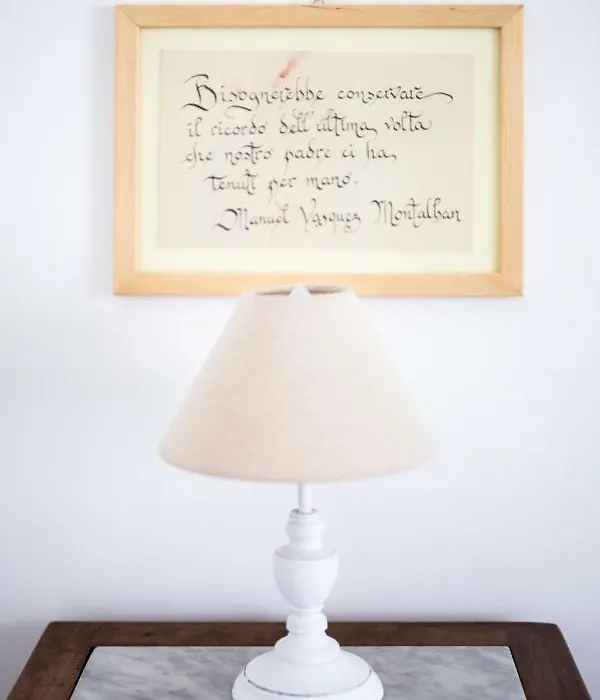 Bisognerebbe conservare
il ricordo dell'ultima volta
che nostro padre ci ha
tenuti per mano.
Manuel Vasquez Montalban